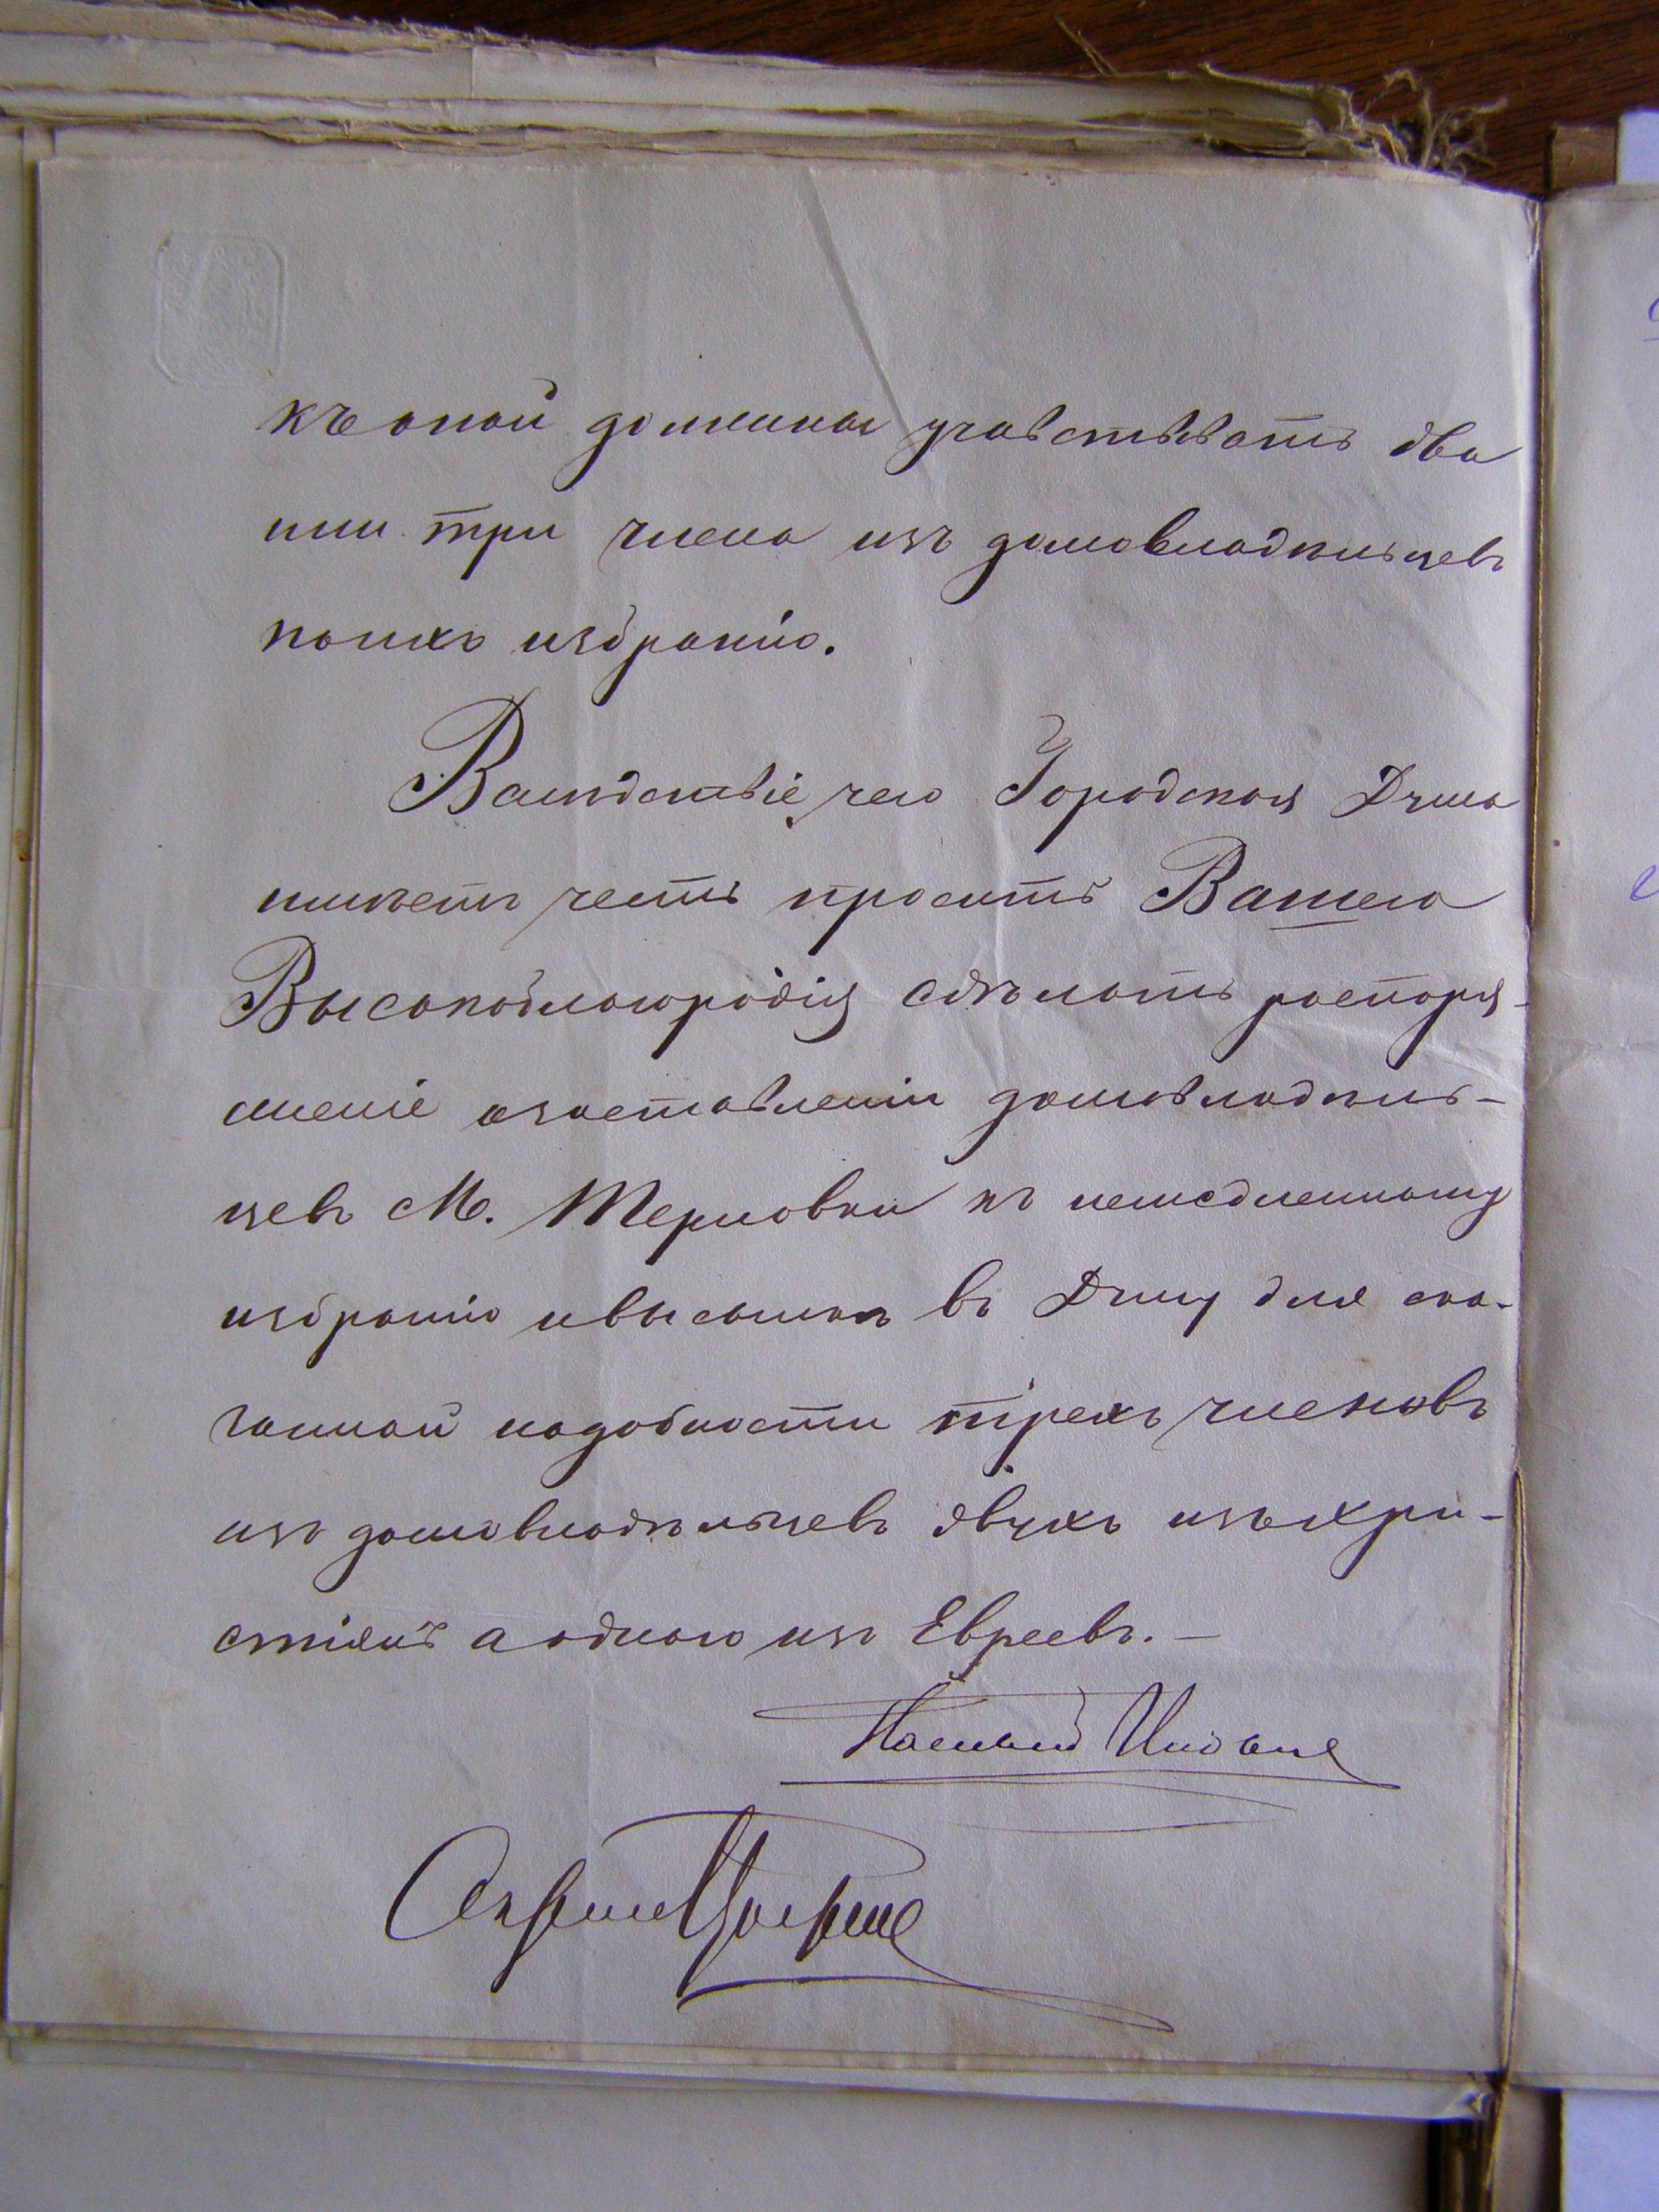 къ оной должны учавствавать два
или три члена изъ домовладельцевъ
по ихъ избранію.
Вследствіе чего Городская Дума
имѣетъ честь просить Вашего
Высокоблагородія сдѣлать распоря-
женіе о заставленіи домовладель-
цевъ М. Терновки къ немедленному
избранію и высылкѣ въ Думу для ска-
занной надобности трехъ членовъ
изъ домовладѣльцевъ двухъ изъ хри-
стіянъ а одного изъ Евреевъ. —